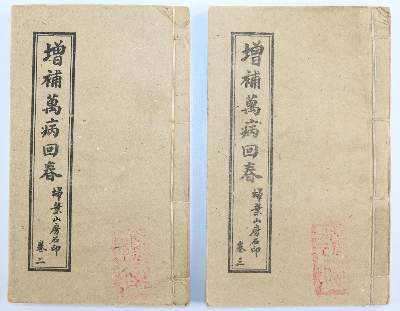 增補萬病回春
掃葉山房石印
卷二
增補萬病回春
掃葉山房石印
卷三